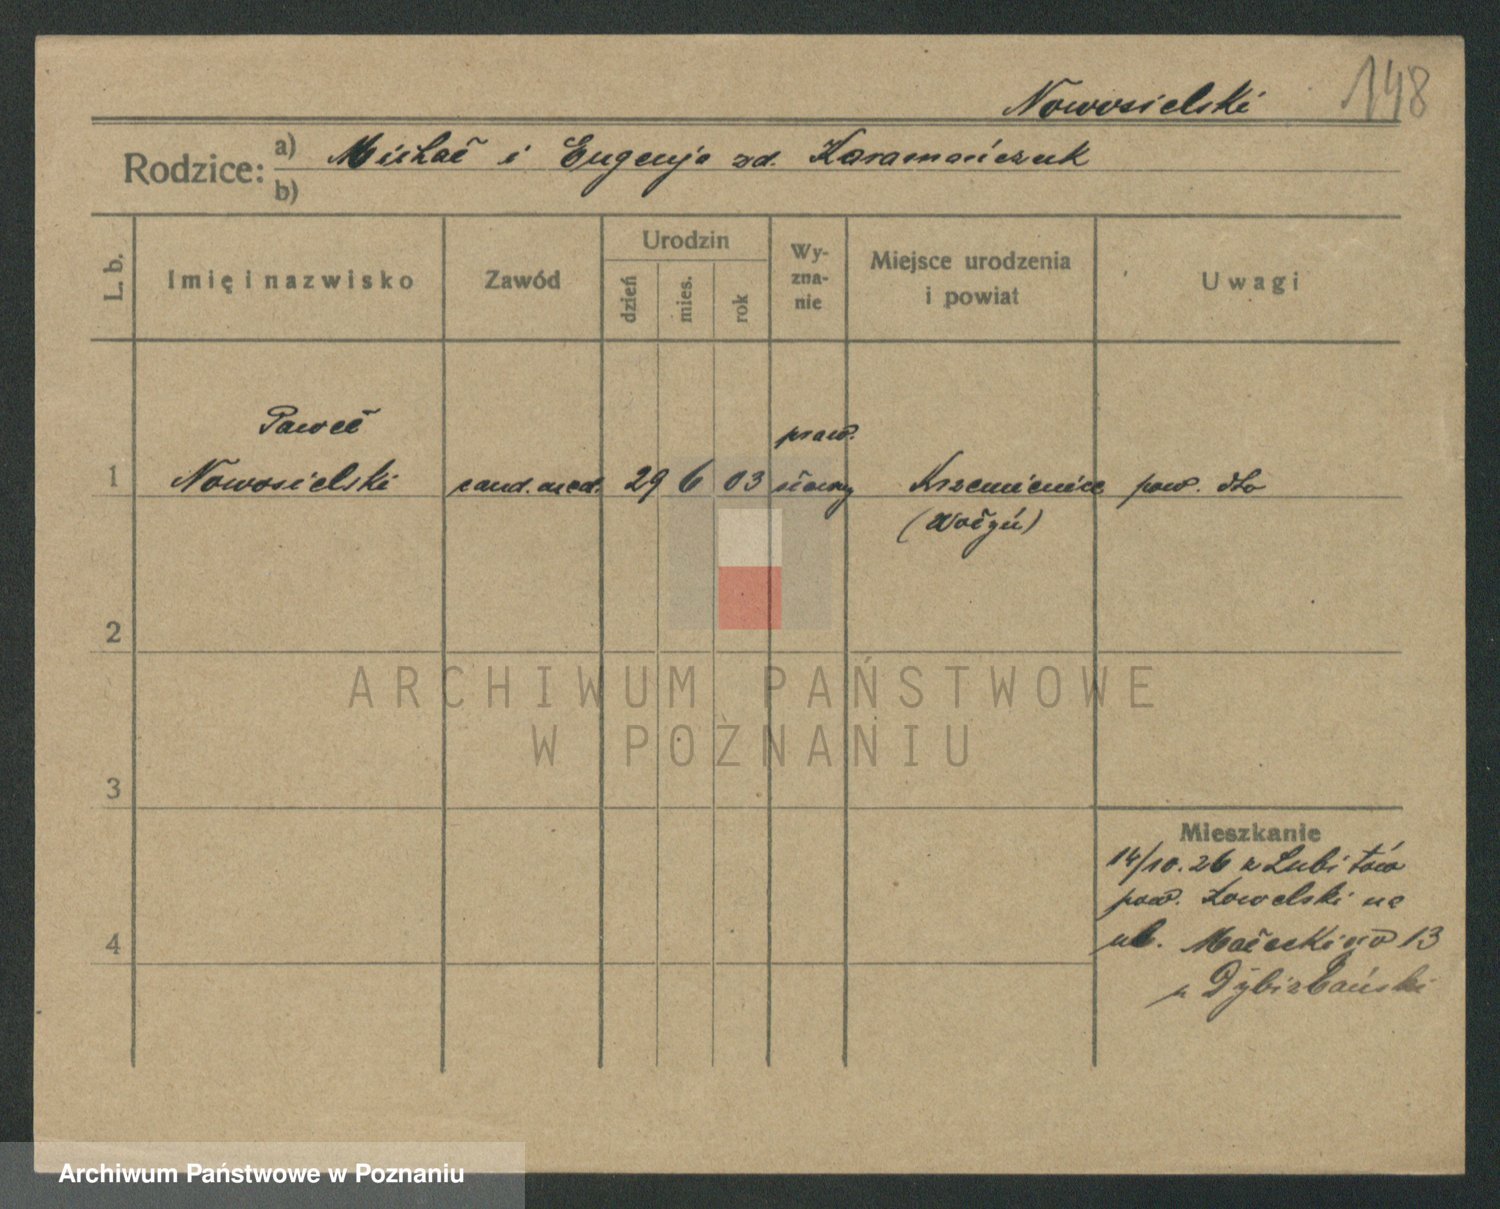 148
Nowosielski
Rodzice: a) Michał i Eugenja zd. Karamańczuk
b)
L. b. Imię i nazwisko Zawód Urodzin dzień mies. rok Wy-zna-nie Miejsce urodzenia i powiat Uwagi
Paweł praw.
1 Nowosielski cand. med. 29 6 03 sławny Krzemieniec pow. tto
(Wołyń)
2
3
Mieszkanie
14/10.26 z Lubitów
pow. Kowelski na
4 ul. Małeckiego 13
u Dybizbański
ARCHIWUM PAŃSTWOWE
W POZNANIU
Archiwum Państwowe w Poznaniu